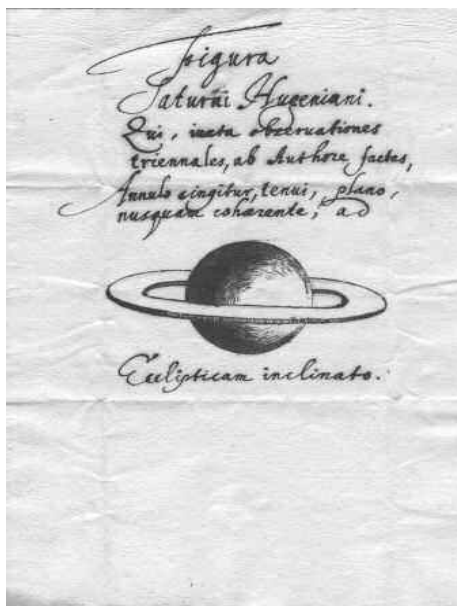 Figura
Saturni Hugeniani.
Qui, iuxta observationes
triennales, ab Authore factas,
Annulo cingitur, tenui, plano,
nusquam cohærente, ad
Eclipticam inclinato.